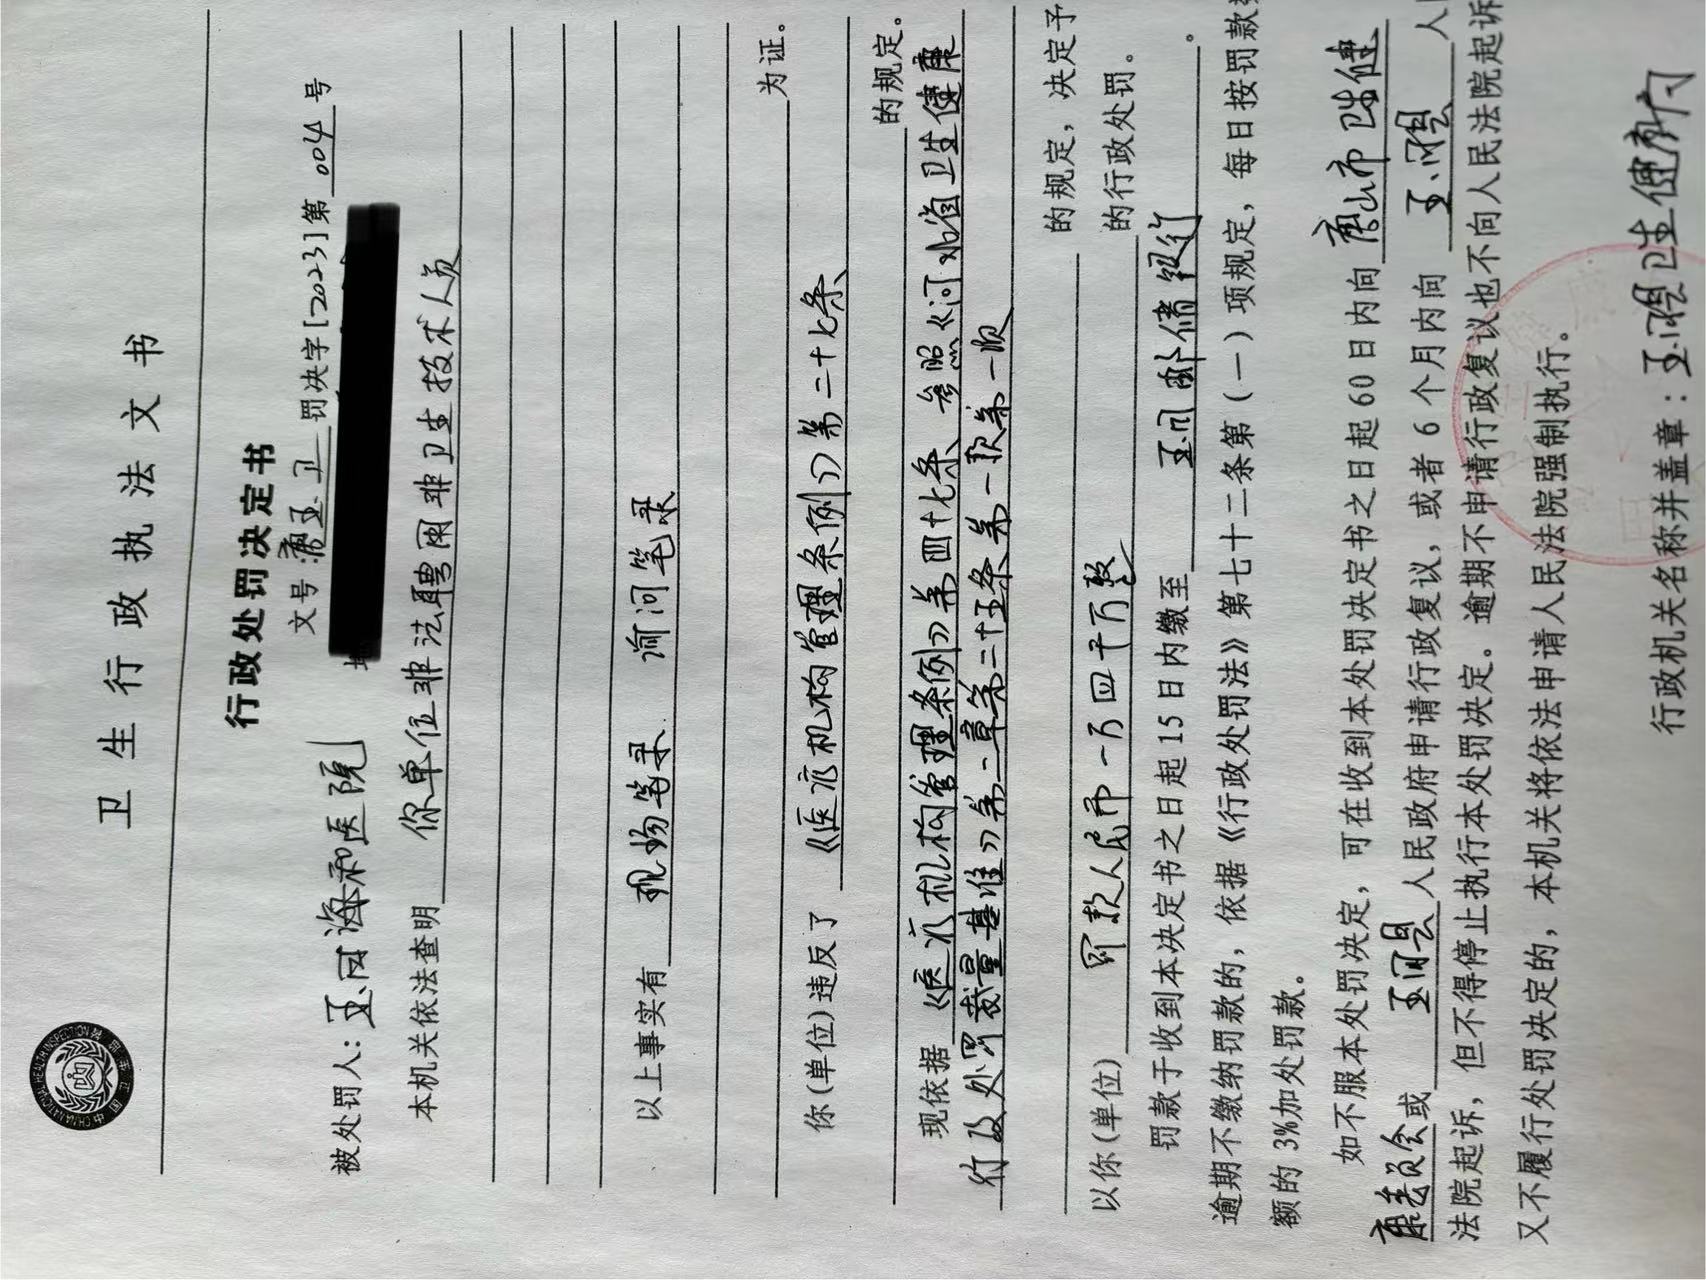 卫生行政执法文书
行政处罚决定书
文号:唐玉卫罚决字[2023]第004号
被处罚人:玉田海和医院
本机关依法查明 你单位非法聘用非卫生技术人员
以上事实有 现场笔录 询问笔录
为证。
你(单位)违反了《医疗机构管理条例》第二十七条
的规定。
现依据《医疗机构管理条例》第四十七条 参照《河北省卫生健康
行政处罚裁量基准》第二章第二十五条第一款第一项
的规定，决定予
以你(单位) 罚款人民币一万四千万整 的行政处罚。
罚款于收到本决定书之日起15日内缴至 玉田邮储银行。
逾期不缴纳罚款的，依据《行政处罚法》第七十二条第(一)项规定，每日按罚款
额的3%加处罚款。
如不服本处罚决定，可在收到本处罚决定书之日起60日内向唐山市卫生健
康委员会或玉田县人民政府申请行政复议，或者6个月内向玉田县人
法院起诉，但不得停止执行本处罚决定。逾期不申请行政复议也不向人民法院起诉
又不履行处罚决定的，本机关将依法申请人民法院强制执行。
行政机关名称并盖章:玉田县卫生健康局